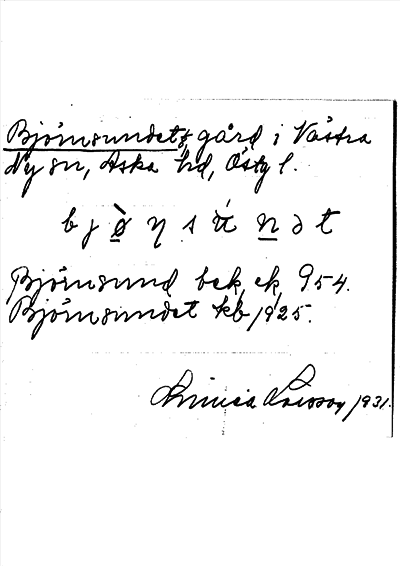 Björnsundet, gård i Västra
Ny sn, Aska hd, Östg l.
b j ø̀ η s ú n d t
Björnsund bek, ek, 954.
Björnsundet kb 1925.
Larsson 1931.